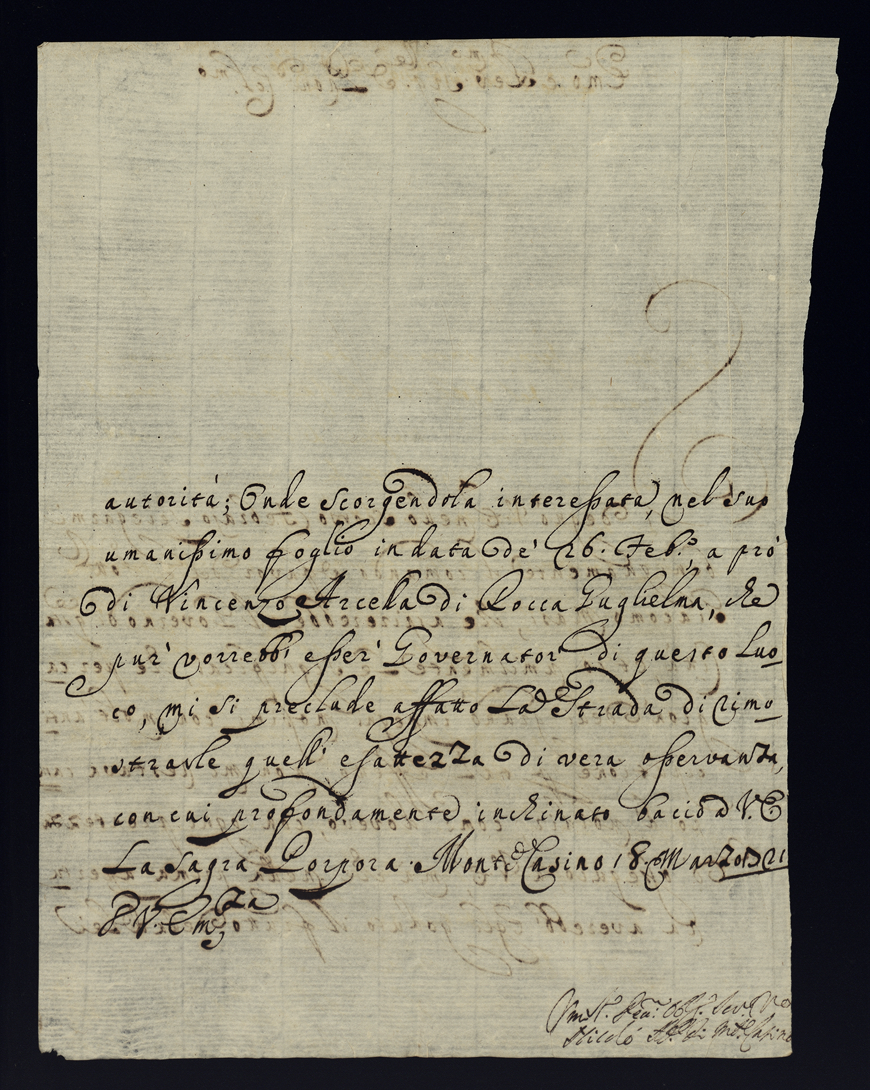 autorità; Onde scorgendola interessata, nel suo
umanissimo foglio in data de' 26. Feb.º, a prò
di Vincenzo Arcella di Rocca Guglielma, che
pur' vorrebb' esser' Governator di questo Luo-
co, mi si preclude affatto La Strada di rimo-
strarle quell' esattezza di vera osservanza,
con cui profondamente inchinato bacio a V. E
La Sagra Porpora. Monte Casino 18. Marzo 1721
D V. Emza
Nicolò Ab. di Mte Casino